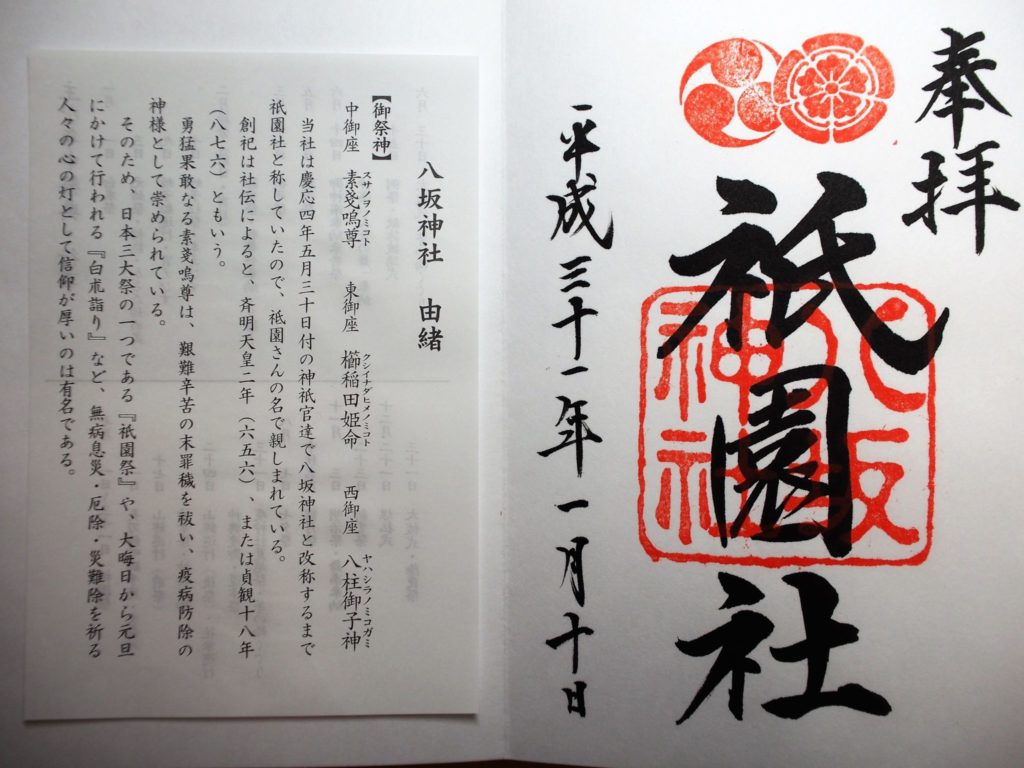 奉拝
祇園社
八坂神社
平成三十一年一月十日
八坂神社 由緒
【御祭神】
中御座 素戔嗚尊 東御座 櫛稲田姫命 西御座 八柱御子神
スサノヲノミコト クシイナダヒメノミコト ヤハシラノミコガミ
当社は慶応四年五月三十日付の神祇官達で八坂神社と改称するまで
祇園社と称していたので、祇園さんの名で親しまれている。
創祀は社伝によると、斉明天皇二年(六五六)、または貞観十八年
(八七六)ともいう。
勇猛果敢なる素戔嗚尊は、艱難辛苦の末罪穢を祓い、疫病防除の
神様として崇められている。
そのため、日本三大祭の一つである『祇園祭』や、大晦日から元旦
にかけて行われる『白朮詣り』など、無病息災・厄除・災難除を祈る
人々の心の灯として信仰が厚いのは有名である。